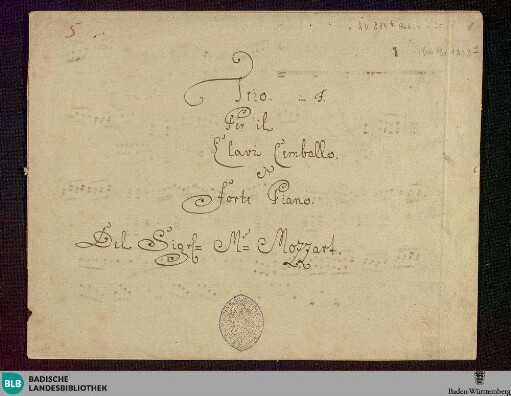 5
1
Trio. in F.
Per il
Clavi Cemballo.
Forte Piano.
Del Sigre= Mr= Mozzart.
BLB
BADISCHE
LANDESBIBLIOTHEK
Baden-Württemberg